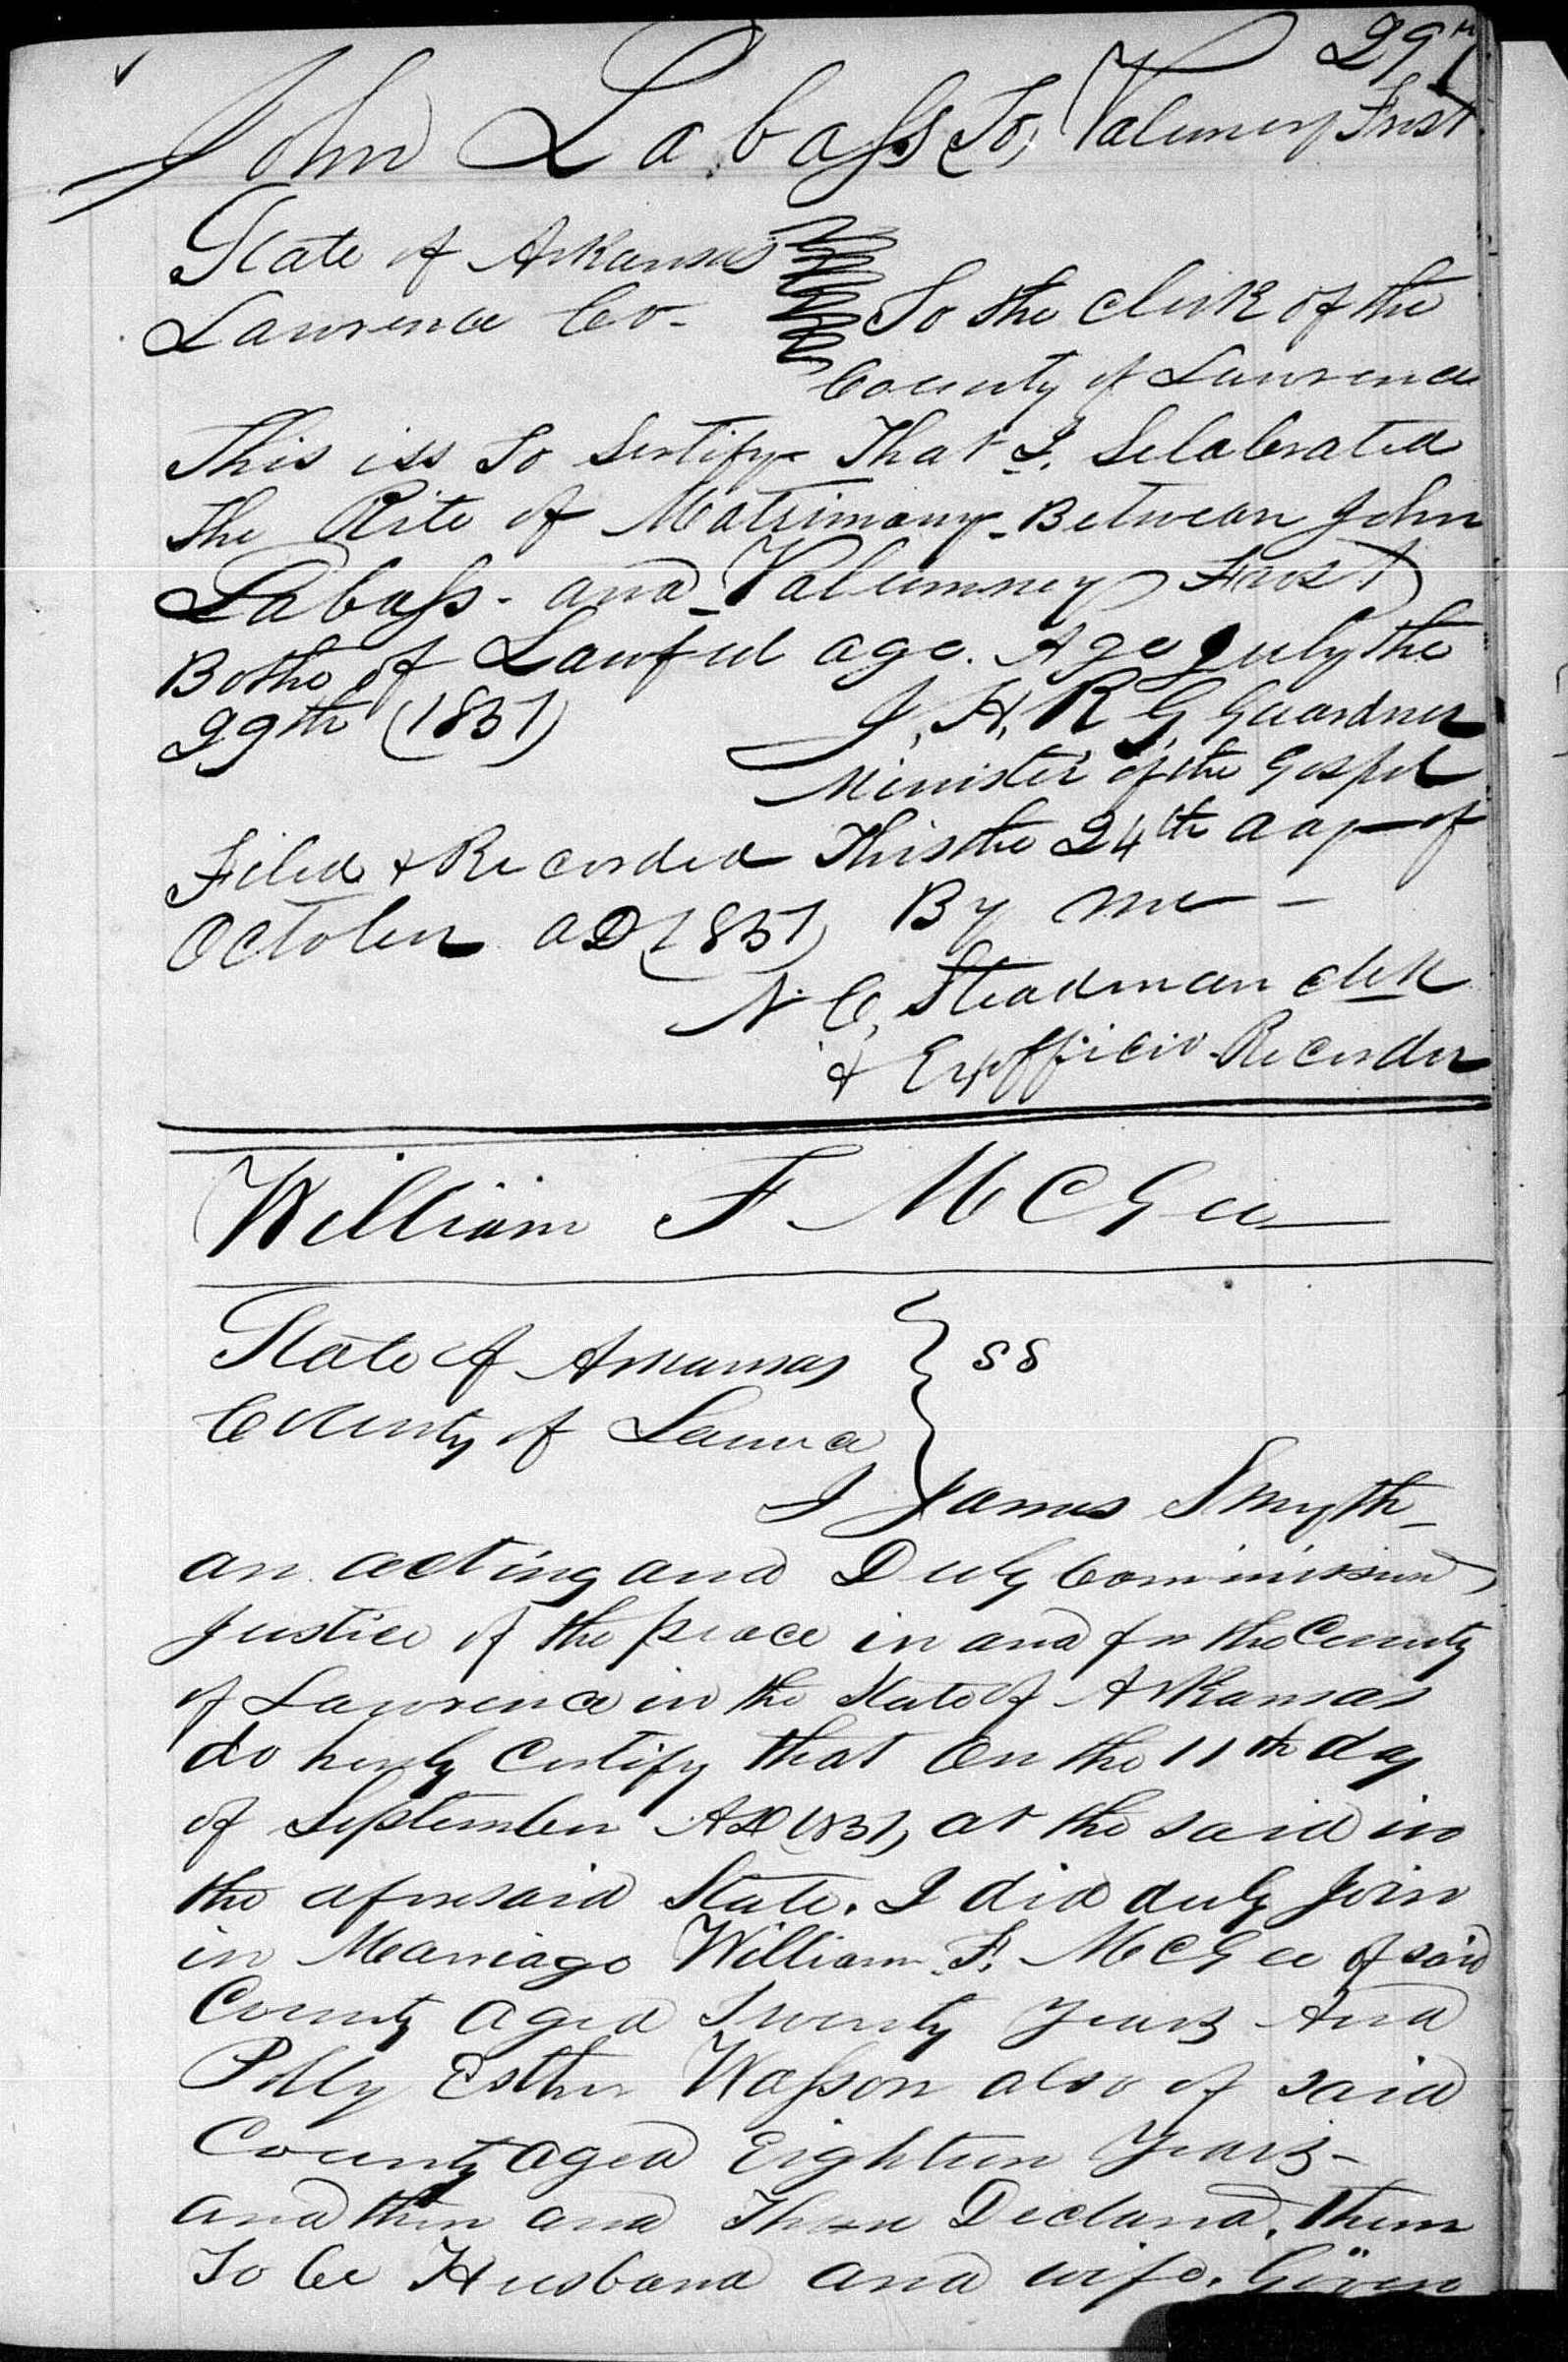 29
John Labass To, Valumey Frost
State of Arkansas
Lawrence Co- To the clerk of the
County of Lawrence
This iss To Sertify That I. Selabrated
The Rite of Matrimony Between John
Labass - and Valumney Frost
Bothe of Lawful age. Age July the
29th (1851)
J. H. R G. Guardner
Minister of the Gospel
Filed & Recorded This the 24th day of
October AD 1851, By me -
N. C. Steadman clerk
& Exofficio Recorder
William F McGee
State of Arkansas } SS
County of Lawrence
I James Smyth
an acting and Duly Commissiond
Justice of the peace in and for the County
of Lawrence in the State of Arkansas
do herby Certify that On the 11th day
of September AD 1851, at the said in
the aforesaid State. I did duly Join
in Marriage William F. McGee of said
County aged Twenty Years And
Polly Esther Wasson also of said
County aged Eighteen Years -
and then and There Declard. them
To be Husband and wife. Given